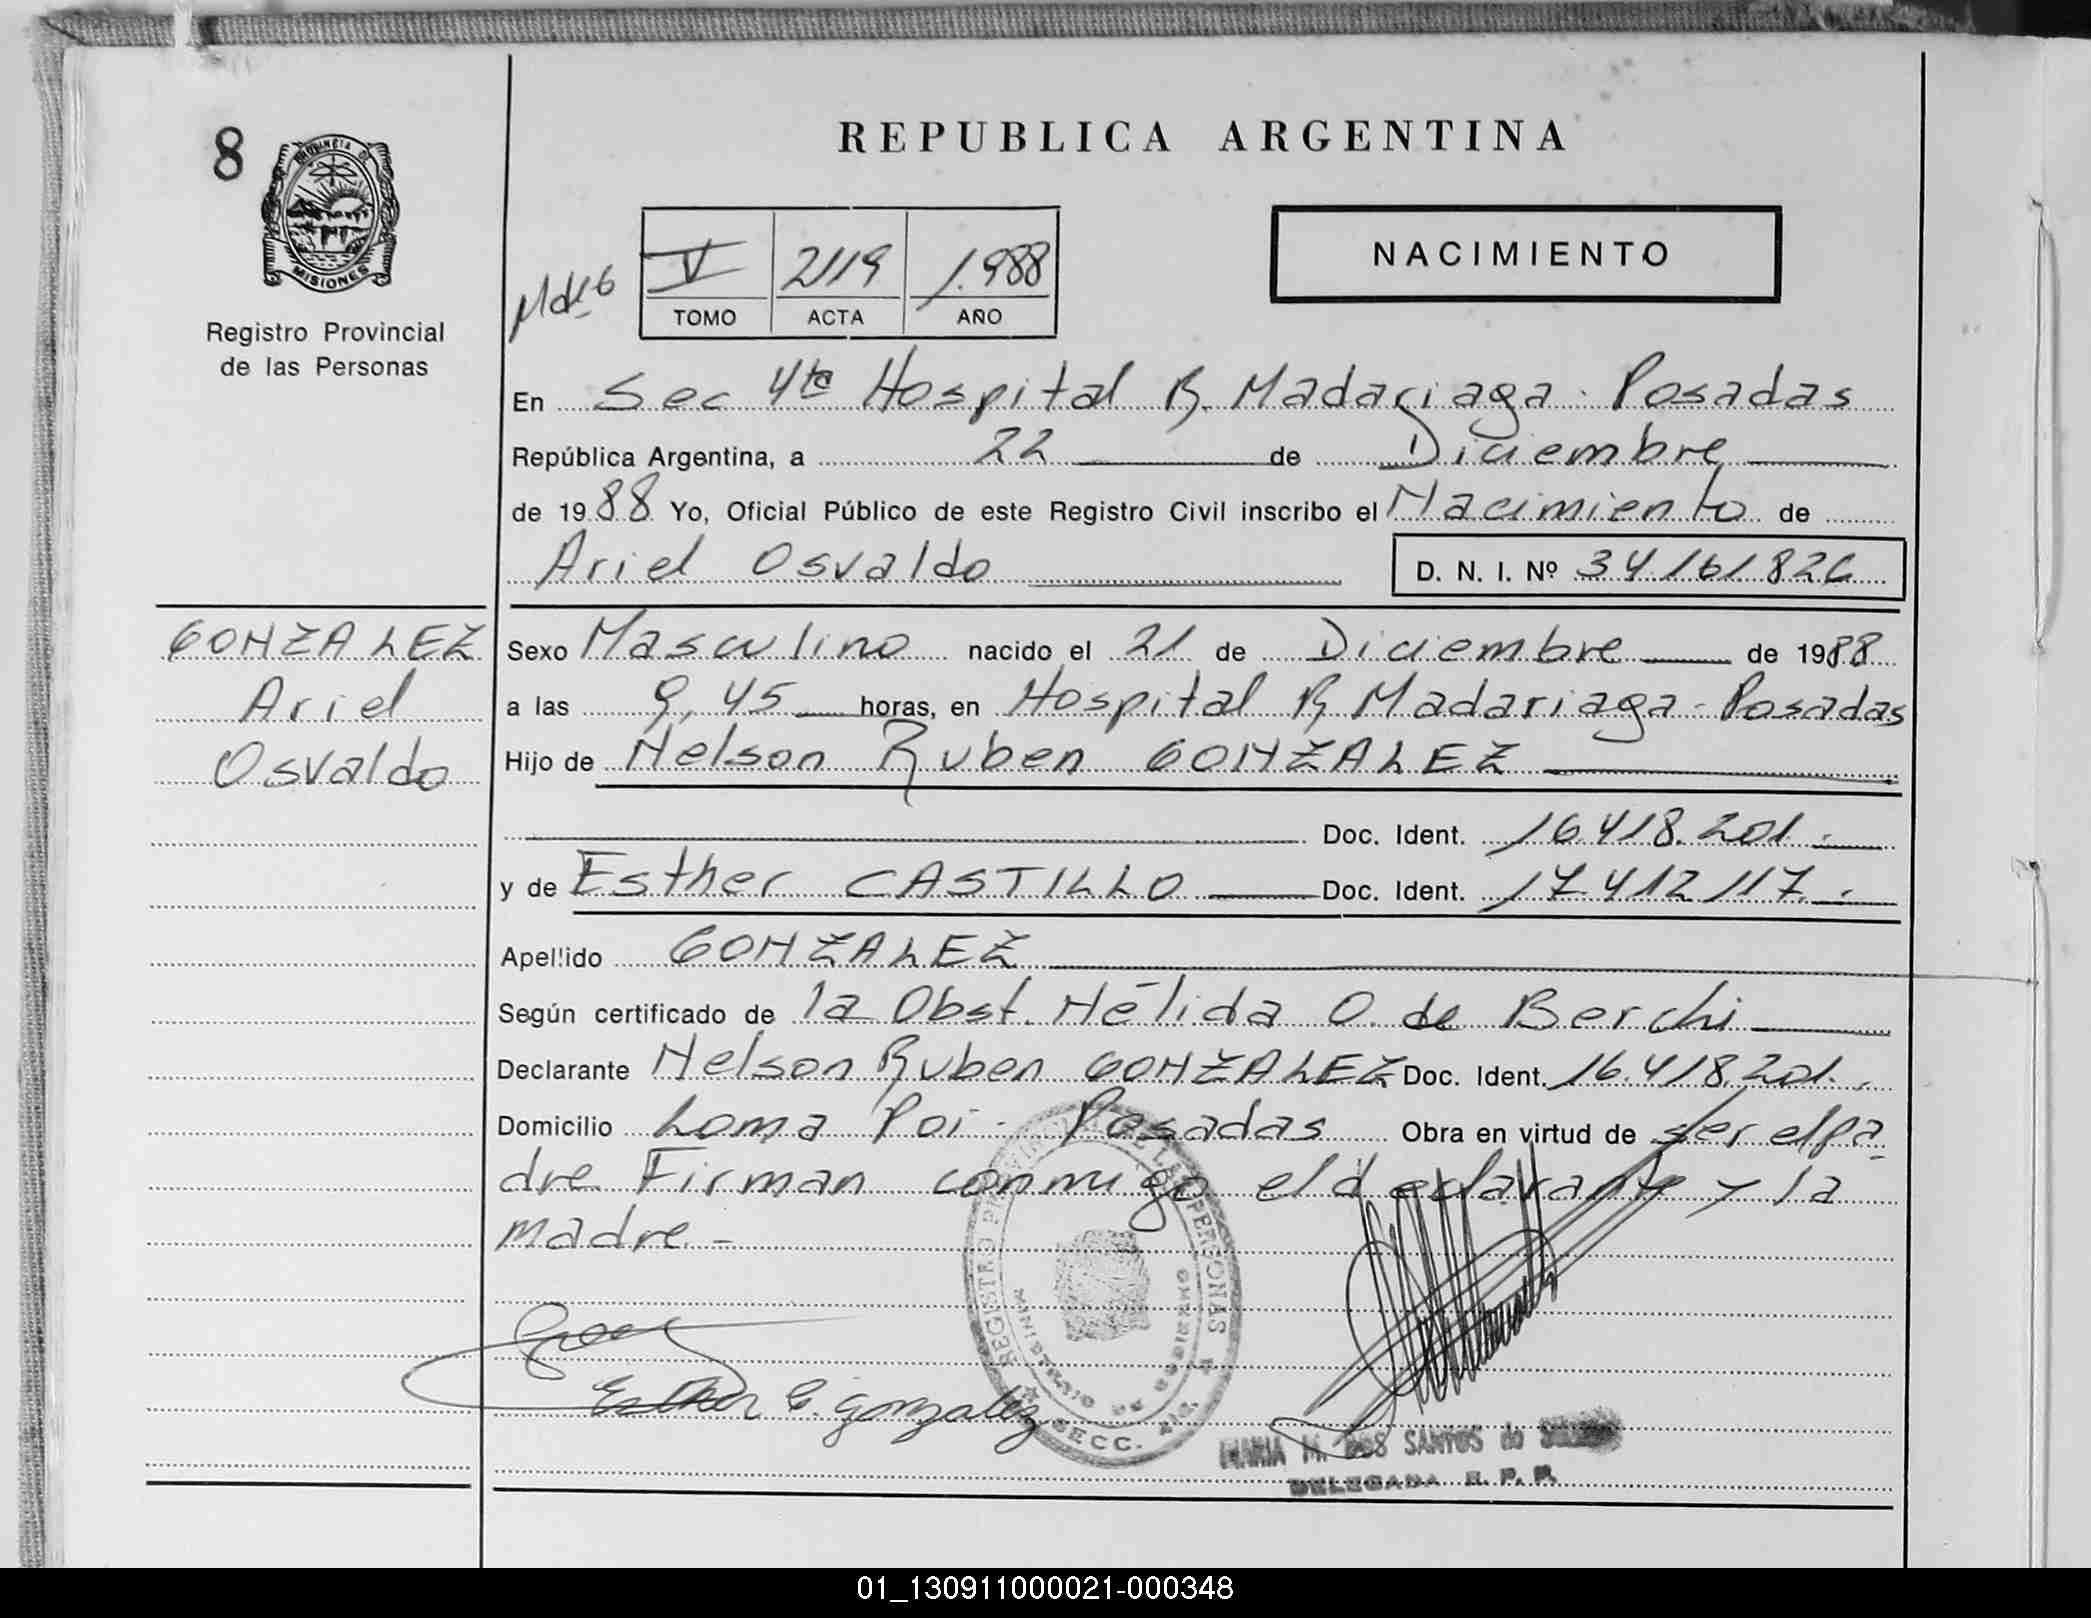 8
PROVINCIA DE
MISIONES
Registro Provincial
de las Personas
REPUBLICA ARGENTINA
NACIMIENTO
V 2119 1.988
TOMO ACTA AÑO
En Sec 4ta Hospital R. Madariaga - Posadas
República Argentina, a 22 de Diciembre
de 1988 Yo, Oficial Público de este Registro Civil inscribo el Nacimiento de
Ariel Osvaldo D. N. I. Nº 34.161.826
GONZALEZ
Ariel
Osvaldo
Sexo Masculino nacido el 21 de Diciembre de 1988
a las 9,45 horas, en Hospital R Madariaga - Posadas
Hijo de Nelson Ruben GONZALEZ
Doc. Ident. 16.418.201.-
y de Esther CASTILLO Doc. Ident. 17.412.117.-
Apellido GONZALEZ
Según certificado de la Obst. Nélida O. de Berchi
Declarante Nelson Ruben GONZALEZ Doc. Ident. 16.418.201.-
Domicilio Loma Poi - Posadas Obra en virtud de ser el pa
dre Firman conmigo el declarante y la
madre.-
REGISTRO PROVINCIAL DE LAS PERSONAS
MINISTERIO DE GOBIERNO
SECC.
Esther C. gonzalez
MARIA M. DOS SANTOS de
DELEGADA R. P. P.
01_130911000021-000348